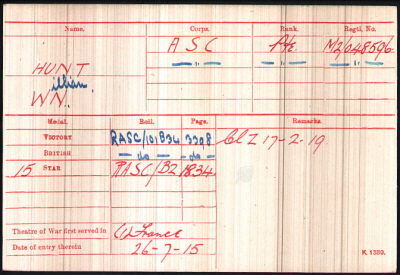 Name. Corps. Rank. Regtl. No.
HUNT A S C Pte M2/048596
illiam — " — — " — — " —
WN.
Medal. Roll. Page. Remarks
VICTORY RASC/101B34 3398 Cl Z 17-2-19
BRITISH — do — — do —
15 STAR RASC/B2 1834
Theatre of War first served in (1) France
Date of entry therein 26-7-15
K. 1380.